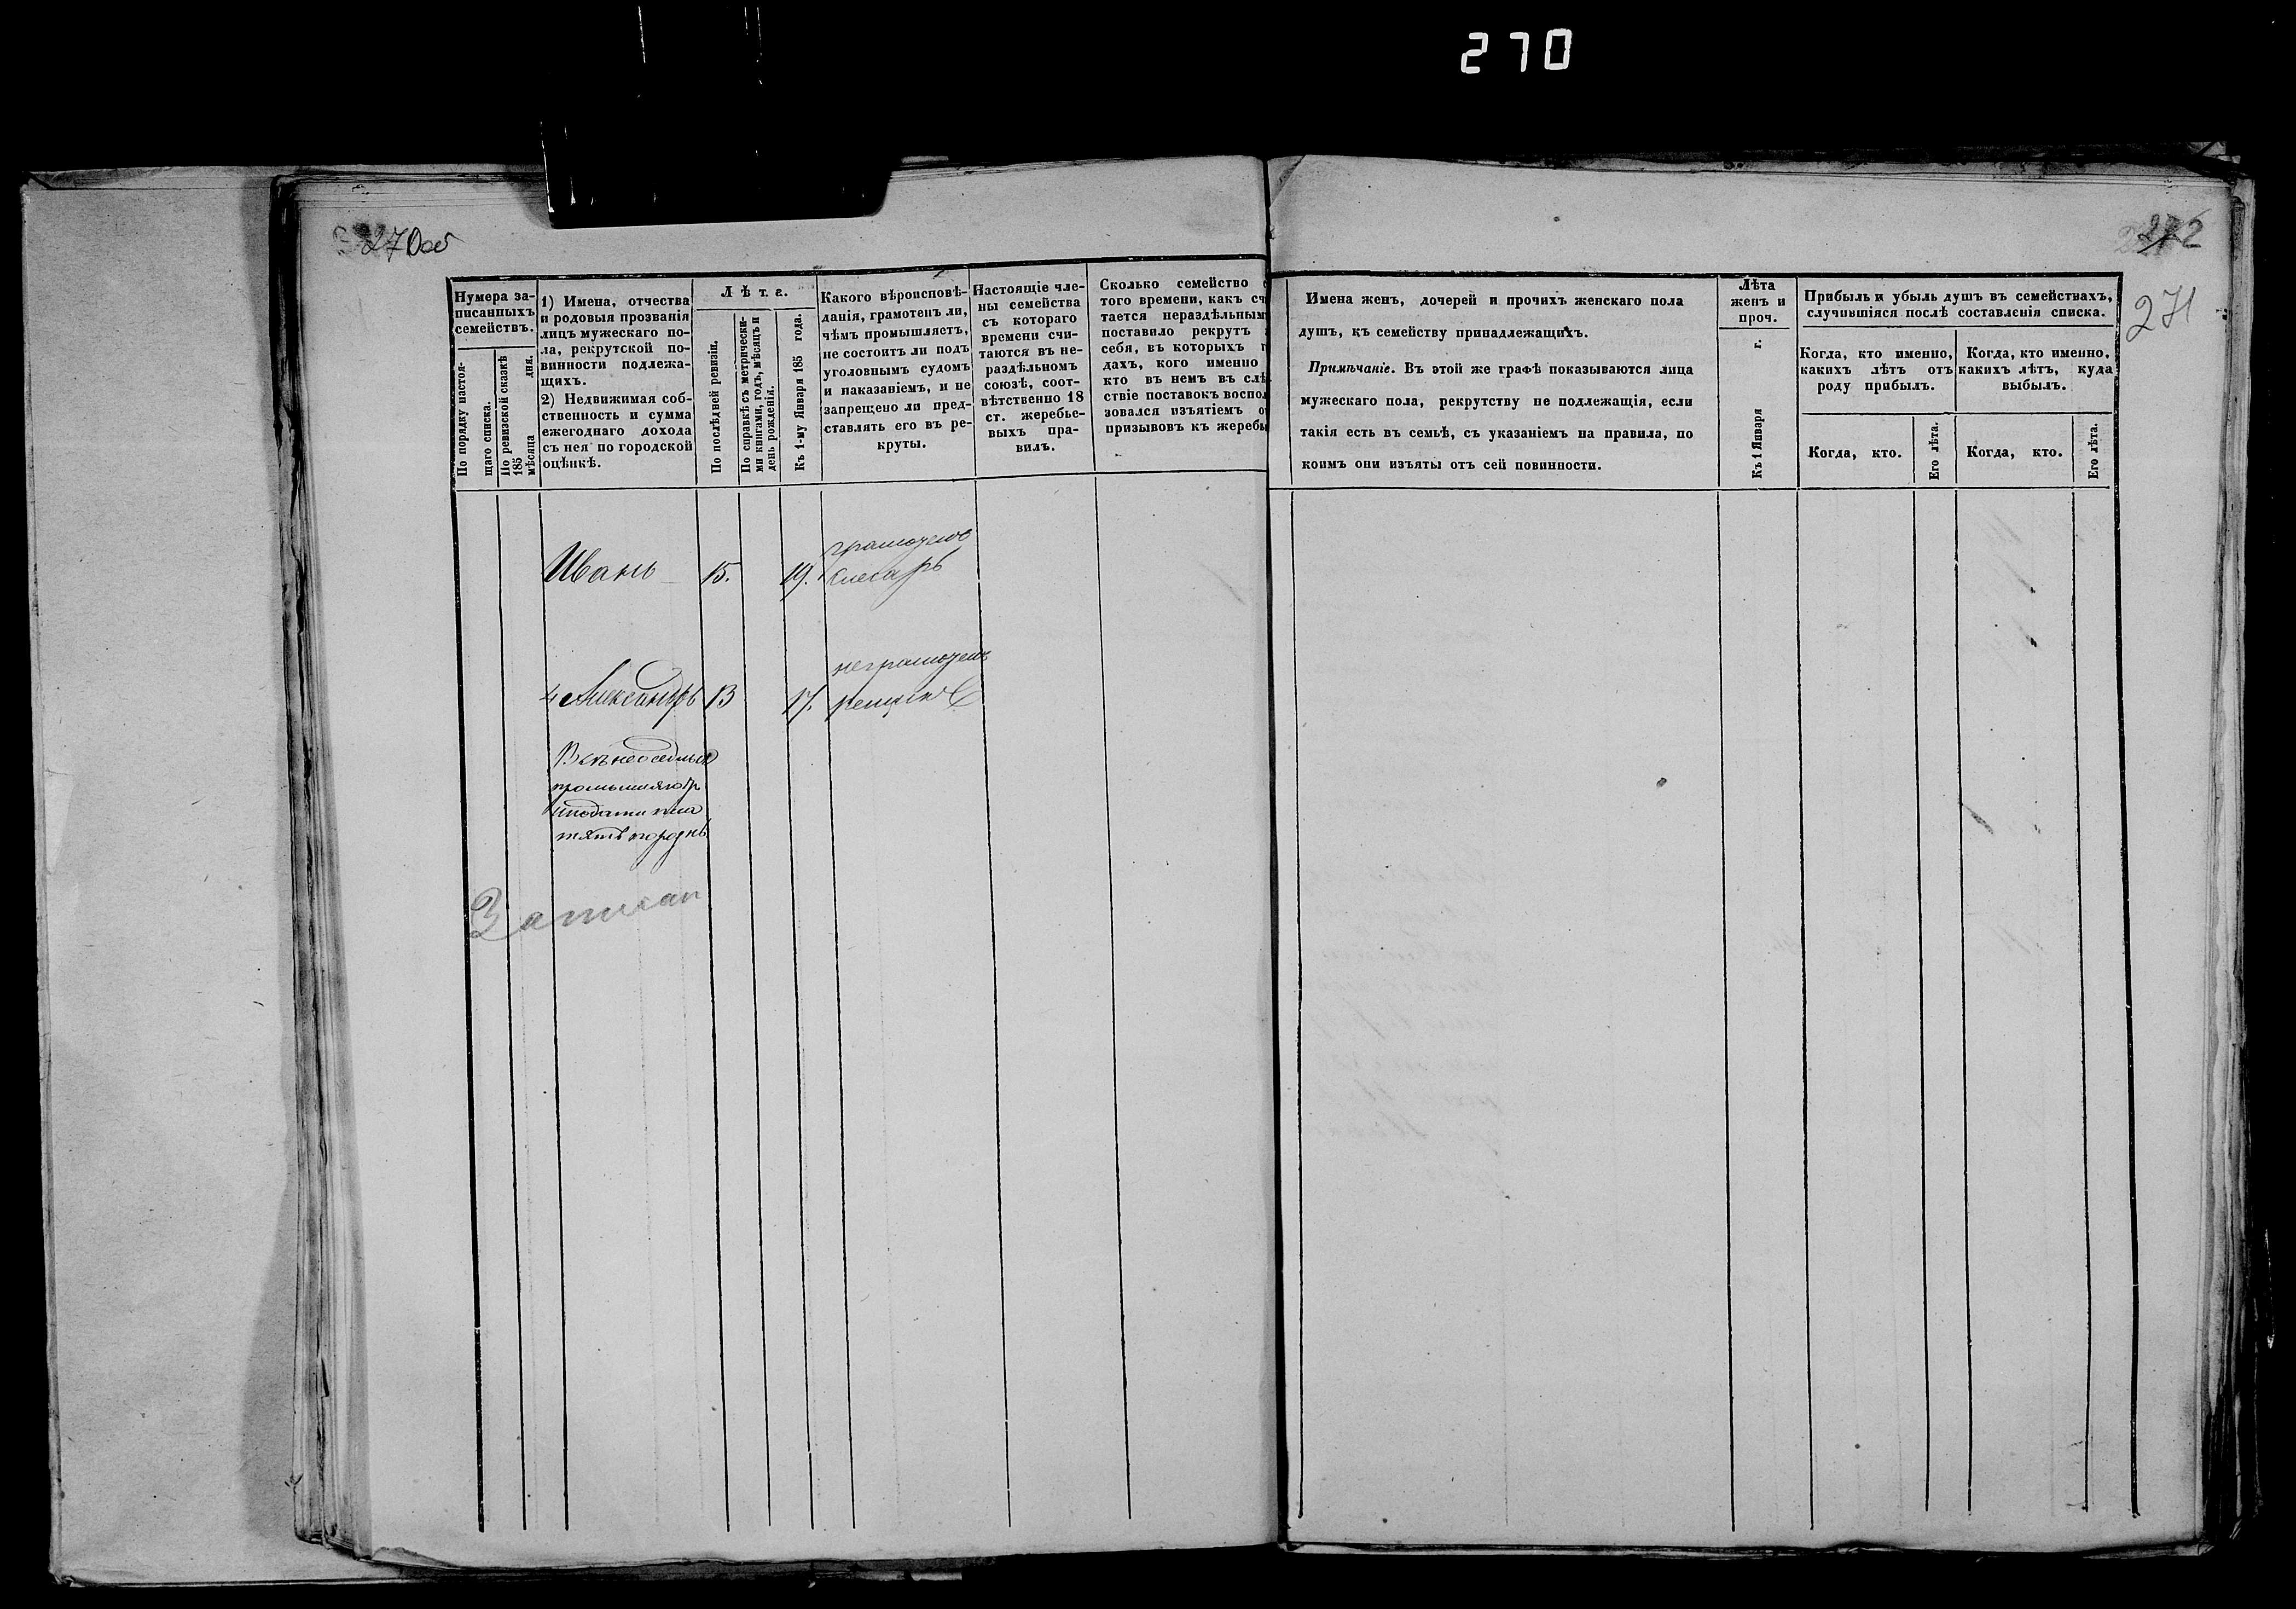 270
270 об
272
271
Нумера за-
писанныхъ
семействъ.
По порядку настоя-
щаго списка.
По ревизской сказкѣ
185 дня.
мѣсяца
1) Имена, отчества
и родовыя прозванія
лицъ мужескаго по-
ла, рекрутской по-
винности подлежа-
щихъ.
2) Недвижимая соб-
ственность и сумма
ежегоднаго дохода
съ нея по городской
оцѣнкѣ.
Лѣта.
По послѣдней ревизіи.
По справкѣ съ метрически-
ми книгами, годъ, мѣсяцъ и
день рожденія.
Къ 1-му Января 185 года.
Какого вѣроисповѣ-
данія, грамотенъ ли,
чѣмъ промышляетъ,
не состоитъ ли подъ
уголовнымъ судомъ
и наказаніемъ, и не
запрещено ли пред-
ставлять его въ ре-
круты.
Настоящіе чле-
ны семейства
съ котораго
времени счи-
таются въ не-
раздѣльномъ
союзѣ, соот-
вѣтственно 18
ст. жеребье-
выхъ пра-
вилъ.
Сколько семейство с
того времени, какъ сч
тается нераздѣльным
поставило рекрутъ
себя, въ которыхъ г
дахъ, кого именно
кто въ немъ въ слѣ
ствіе поставокъ воспол
зовался изъятіемъ о
призывовъ къ жеребь
Имена женъ, дочерей и прочихъ женскаго пола
душъ, къ семейству принадлежащихъ.
Примѣчаніе. Въ этой же графѣ показываются лица
мужескаго пола, рекрутству не подлежащія, если
такія есть въ семьѣ, съ указаніемъ на правила, по
коимъ они изъяты отъ сей повинности.
Лѣта
женъ и
проч.
Къ 1 Января г.
Прибыль и убыль душъ въ семействахъ,
случившіяся послѣ составленія списка.
Когда, кто именно,
какихъ лѣтъ отъ
роду прибылъ.
Когда, кто именно,
какихъ лѣтъ, куда
выбылъ.
Когда, кто.
Его лѣта.
Когда, кто.
Его лѣта.
грамотенъ
Иванъ 15. 19. слесарь
неграмотенъ
4 Александръ 13 17. рещикъ
промышляютъ
и подати пла
тятъ порознь
Записан